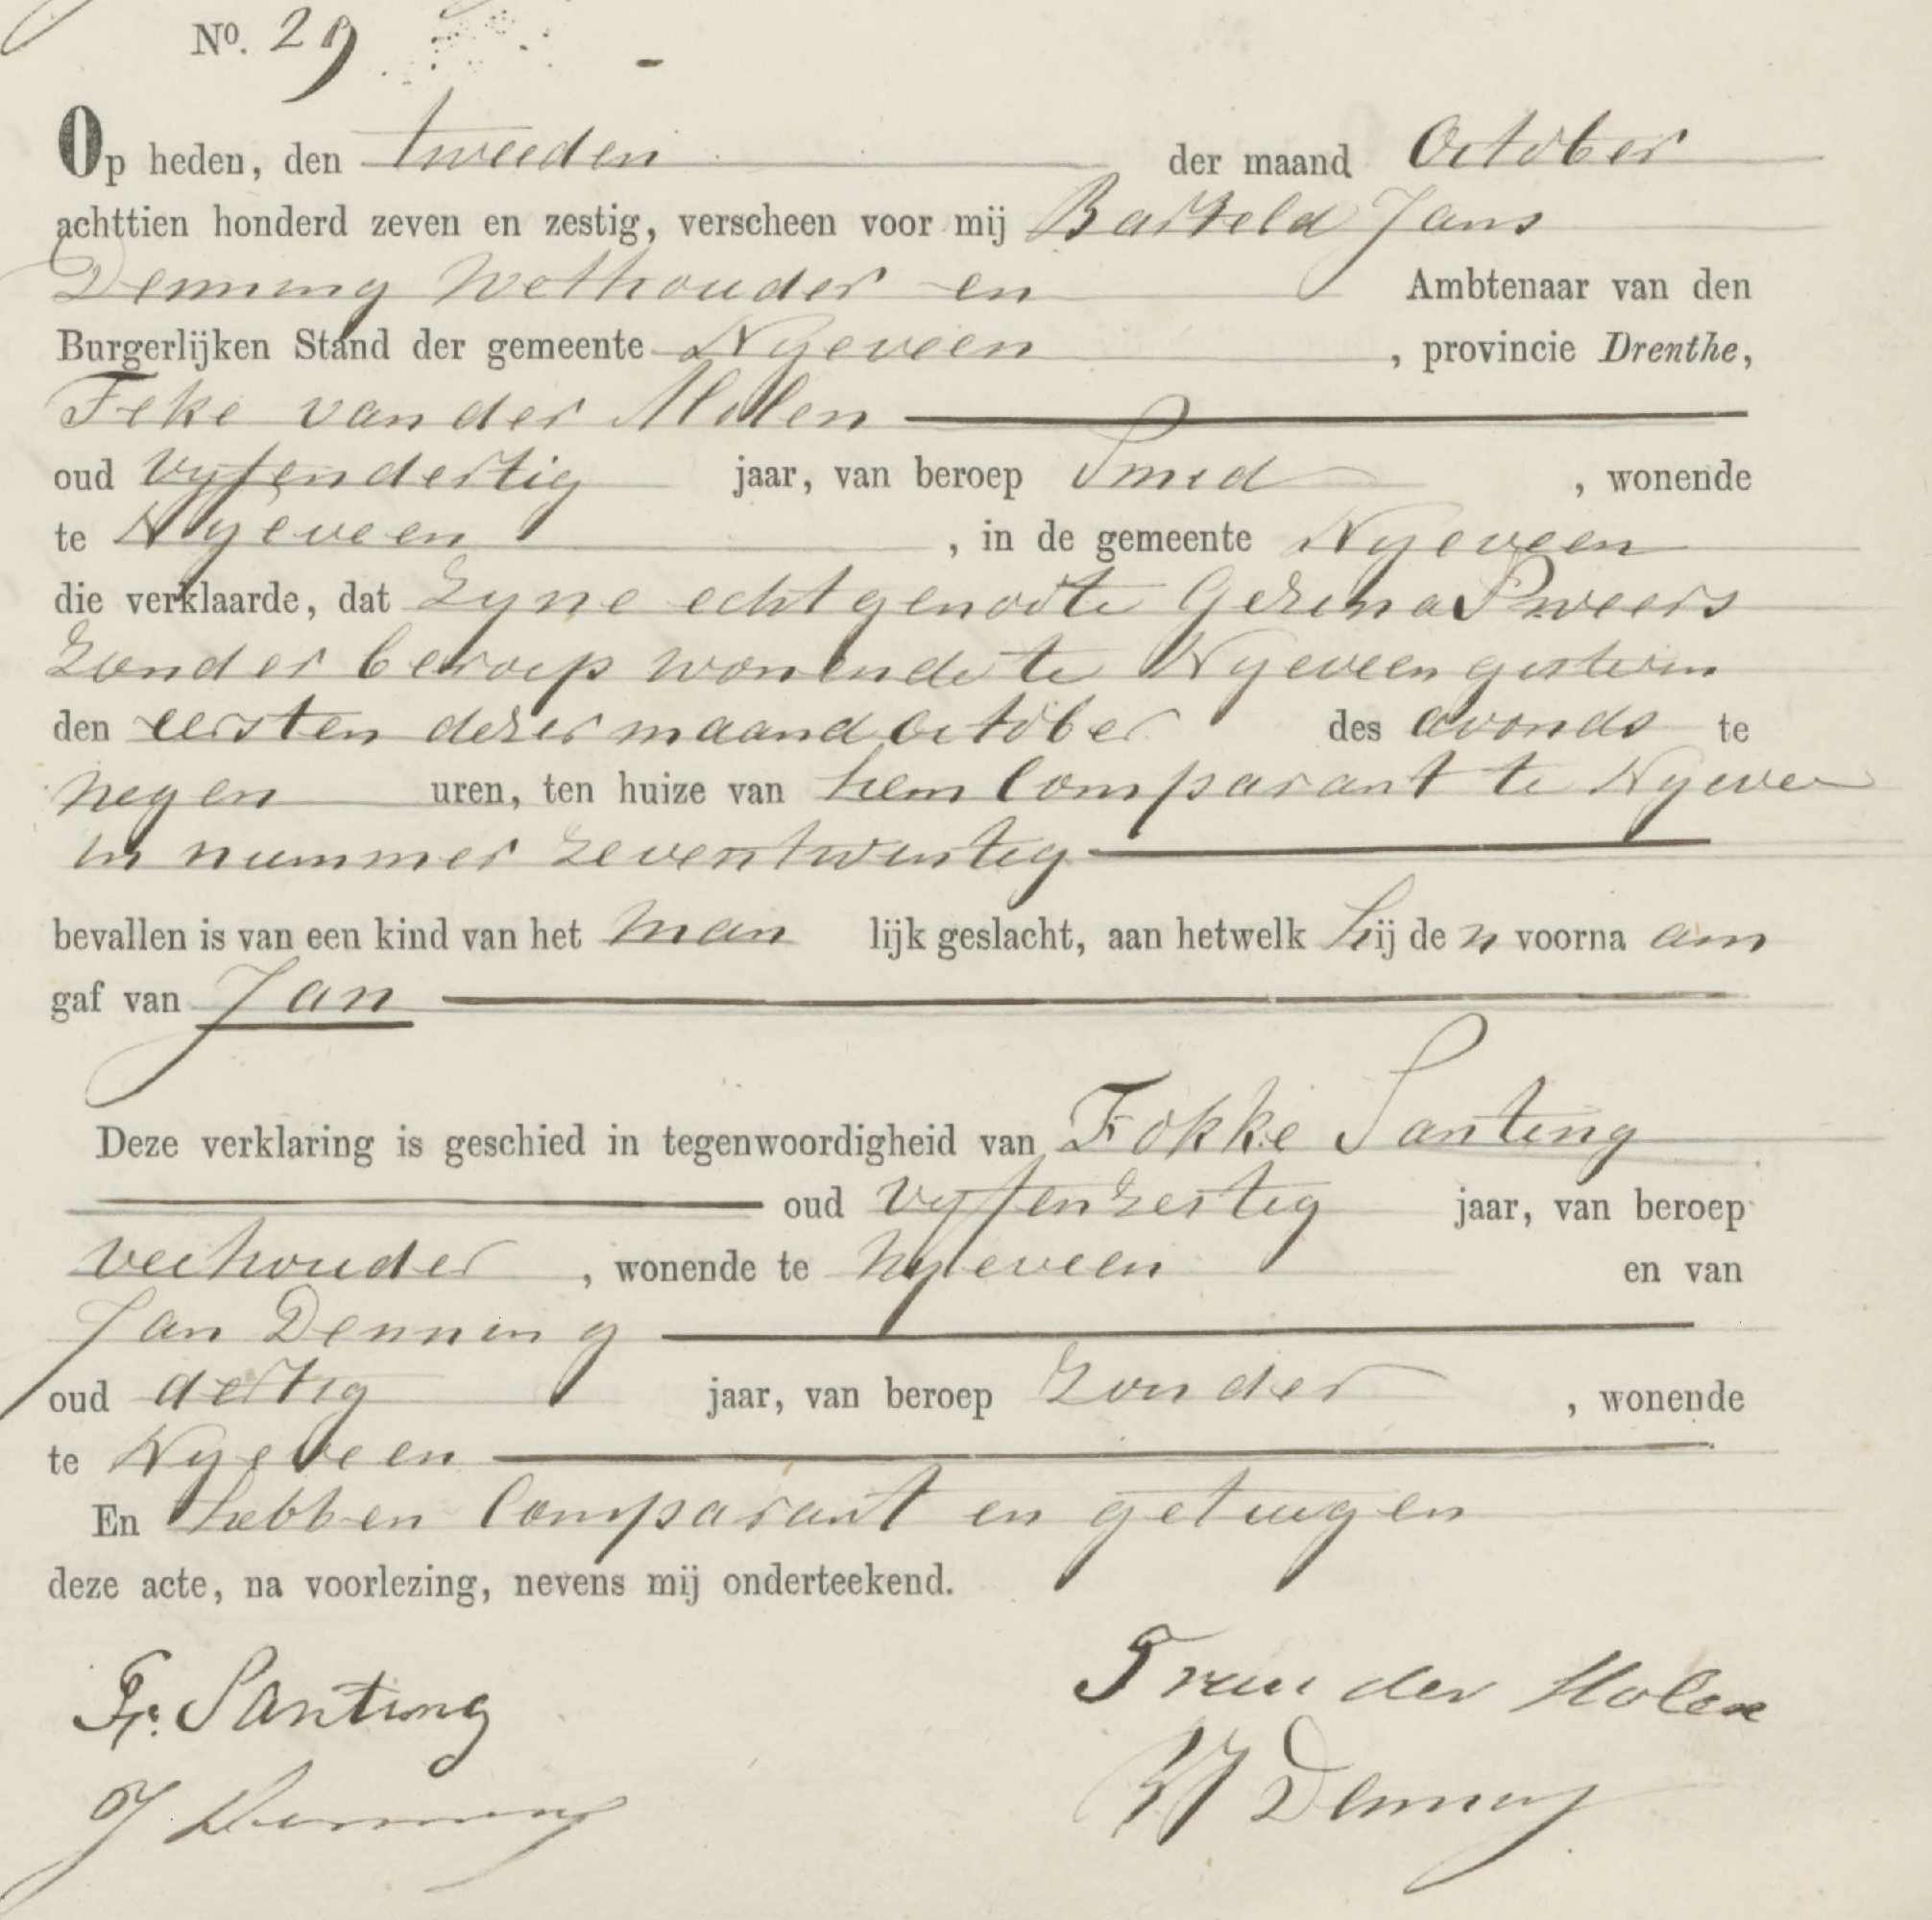 No. 29
Op heden, den tweeden der maand October
achttien honderd zeven en zestig, verscheen voor mij Barteld Jans
Denning Wethouder en Ambtenaar van den
Burgerlijken Stand der gemeente Nyeveen, provincie Drenthe,
Feke van der Molen
oud vyfendertig jaar, van beroep Smid, wonende
te Nyeveen, in de gemeente Nyeveen
die verklaarde, dat Zyne echtgenoote Gezina Sweers
Zonder beroep wonende te Nyeveen gisteren
den eersten dezer maand October des avonds te
negen uren, ten huize van hem Comparant te Nyeveen
in nummer zeventwintig
bevallen is van een kind van het man lijk geslacht, aan hetwelk hij de n voorna am
gaf van Jan
Deze verklaring is geschied in tegenwoordigheid van Fokke Santing
oud vyfenzestig jaar, van beroep
veehouder, wonende te Nyeveen en van
Jan Denning
oud dertig jaar, van beroep Zonder, wonende
te Nyeveen
En hebben Comparant en getuigen
deze acte, na voorlezing, nevens mij onderteekend.
Fr. Santing F van der Molen
J Denning BJ Denning